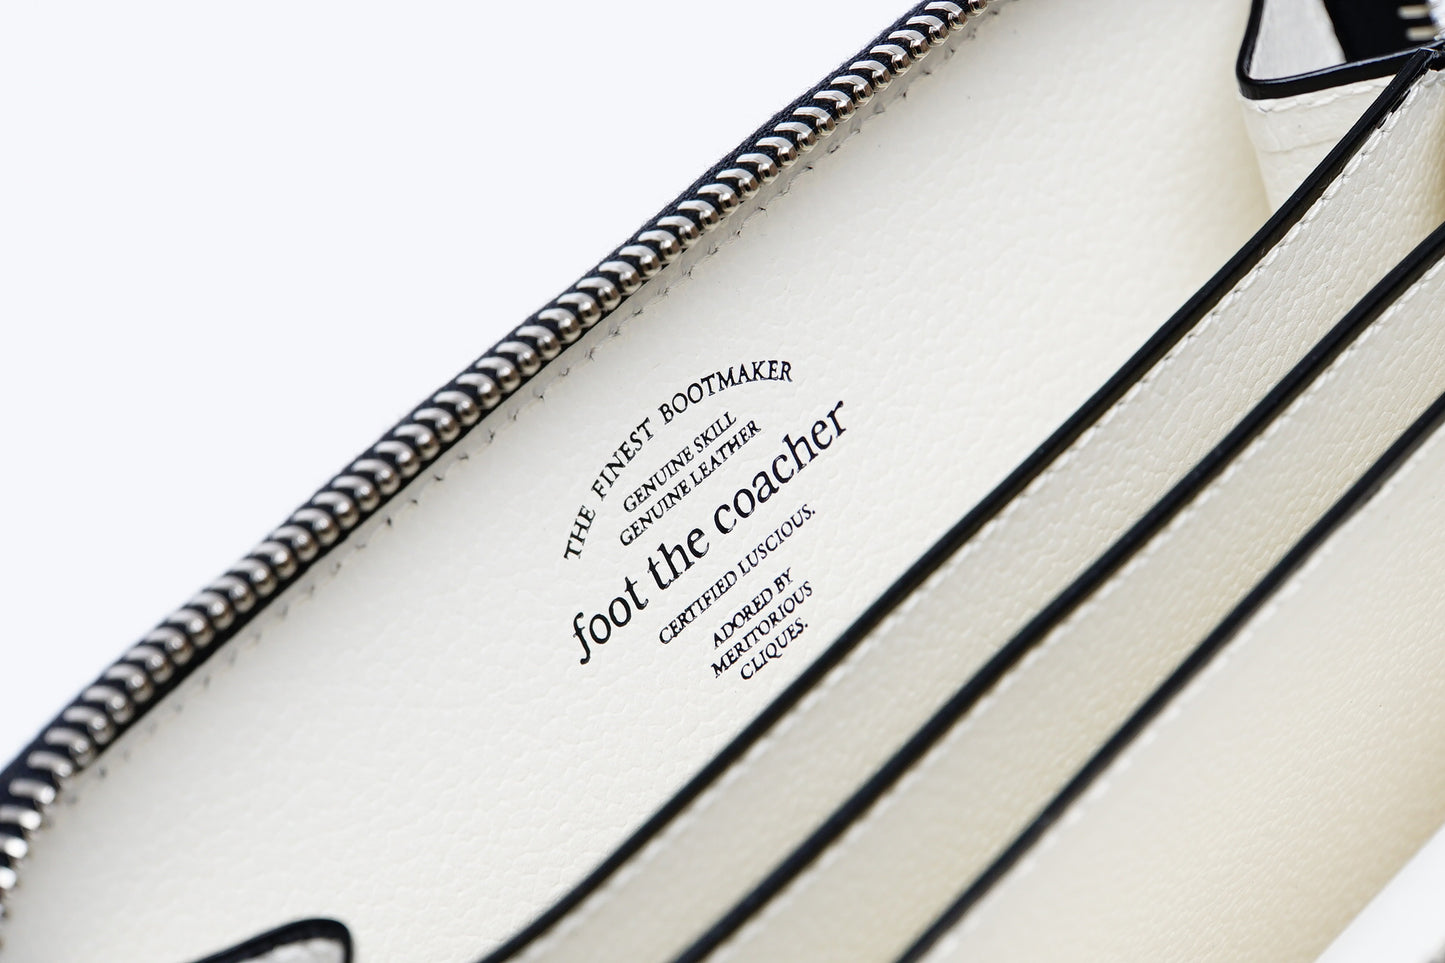 THE FINEST BOOTMAKER
GENUINE SKILL
GENUINE LEATHER
foot the coacher
CERTIFIED LUSCIOUS.
ADORED BY
MERITORIOUS
CLIQUES.